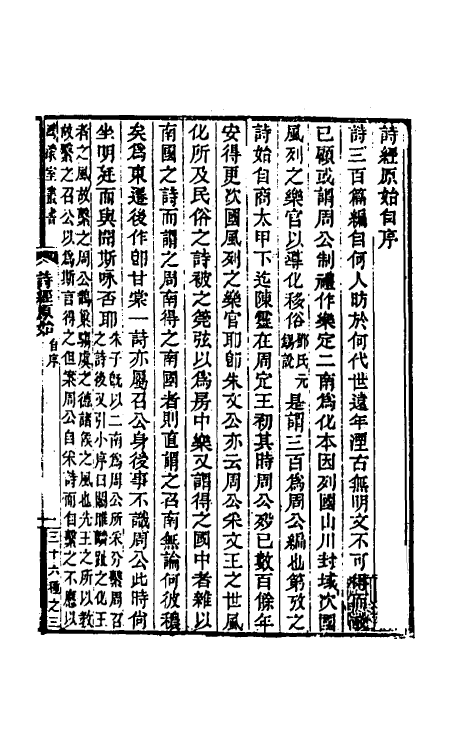 詩經原始自序
詩三百篇編自何人昉於何代世遠年湮古無明文不可得而
已顧或謂周公制禮作樂定二南為化本因列國山川封域次國
風列之樂官以導化移俗鄭氏元錫說是謂三百為周公編也第攷之
詩始自商太甲下迄陳靈在周定王初其時周公歿已數百餘年
安得更次國風列之樂官耶卽朱文公亦云周公采文王之世風
化所及民俗之詩被之筦弦以為房中樂又謂得之國中者雜以
南國之詩而謂之周南得之南國者則直謂之召南無論何彼穠
矣為東遷後作卽甘棠一詩亦屬召公身後事不識周公此時何
坐明廷而與聞斯咏否耶朱子旣以二南為周公所采分繫周召
之詩後又引小序曰關雎麟趾之化王
者之風故繫之周公鵲巢騶虞之德諸侯之風也先王之所以教
故繫之召公以為斯言得之但案周公自采詩而自繫之不應以
叢書
詩經原始
自序
一
三十六種之三